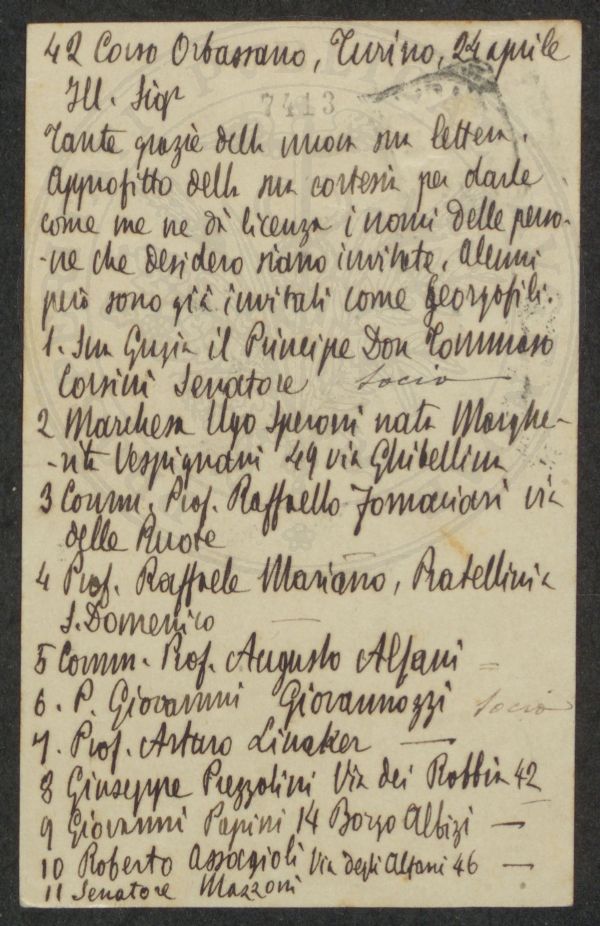 42 Corso Orbassano, Turino, 24 aprile
Ill. Sigr
7413
Tante grazie della nuova sua lettera.
Approfitto della sua cortesia per darle
come me ne dà licenza i nomi delle perso-
-ne che desidero siano invitate. Alcuni
però sono già invitati come Georgofili.
1. Sua Grazia il Principe Don Tommaso
Corsini Senatore socio
2 Marchesa Ugo Speroni nata Marghe-
-rita Vespignani 49 via Ghibellina
3 Comm. Prof. Raffaello Fornaciari via
delle Ruote
4 Prof. Raffaele Mariano, Badellinia
S. Domenico —
5 Comm. Prof. Augusto Alfani =
6. P. Giovanni Giovannozzi socio
7. Prof. Arturo Linaker —
8 Giuseppe Prezzolini Via dei Robbia 42
9 Giovanni Papini 14 Borgo Albizi —
10 Roberto Assagioli Via degli Alfani 46 —
11 Senatore Mazzoni